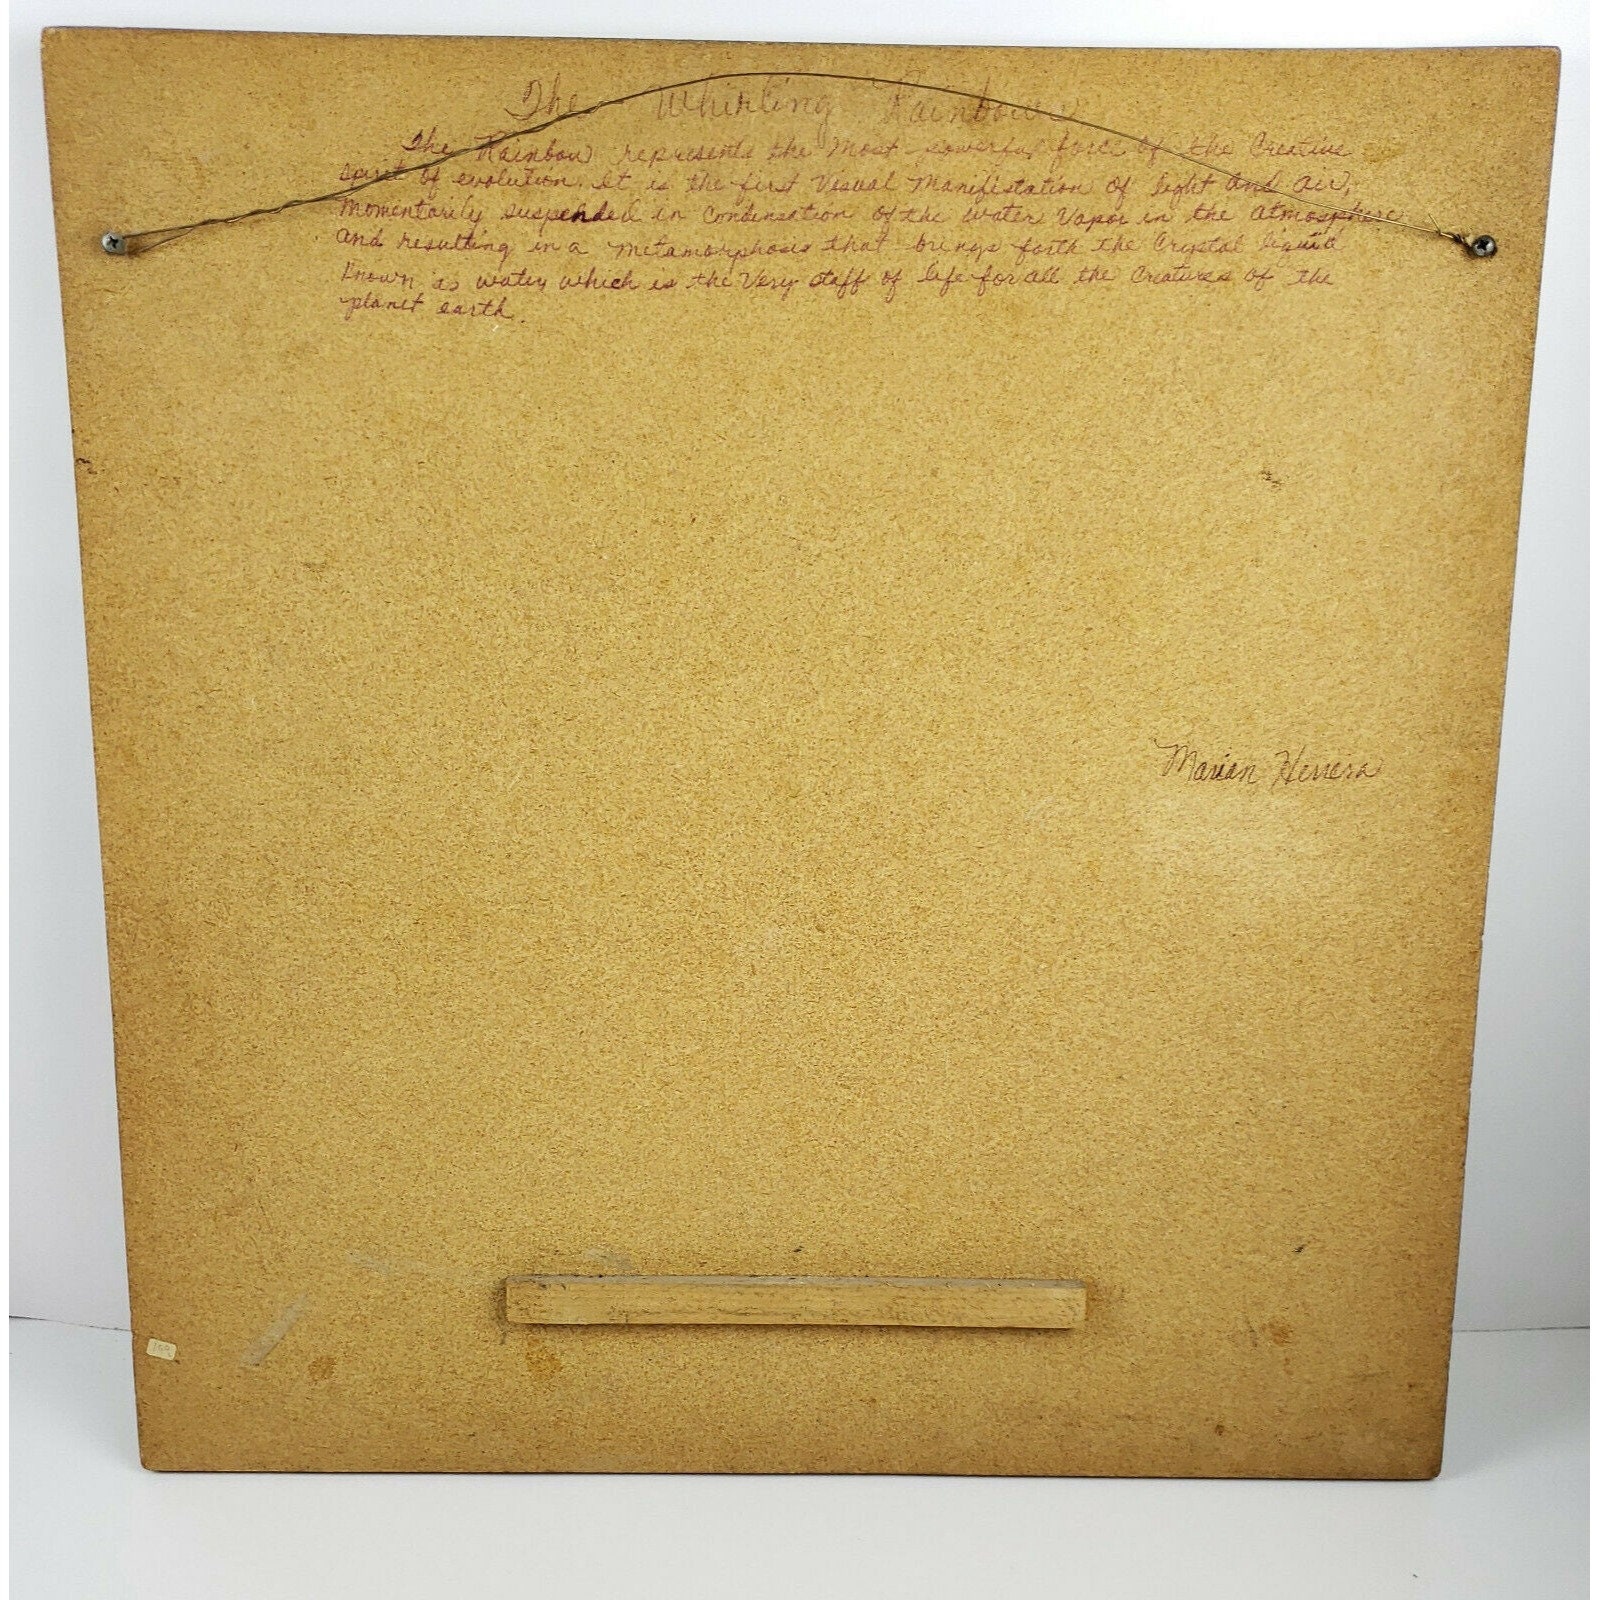 The Whirling Rainbow
The Rainbow represents the Most powerful force of the Creative
spirit of evolution. It is the first Visual Manifistation of light and air,
Momentarily suspended in Condensation of the water Vapor in the atmosphere
and resulting in a metamorphosis that brings forth the Crystal liquid
known as water, which is the Very staff of life for all the Creatures of the
planet earth.
Marian Herrera